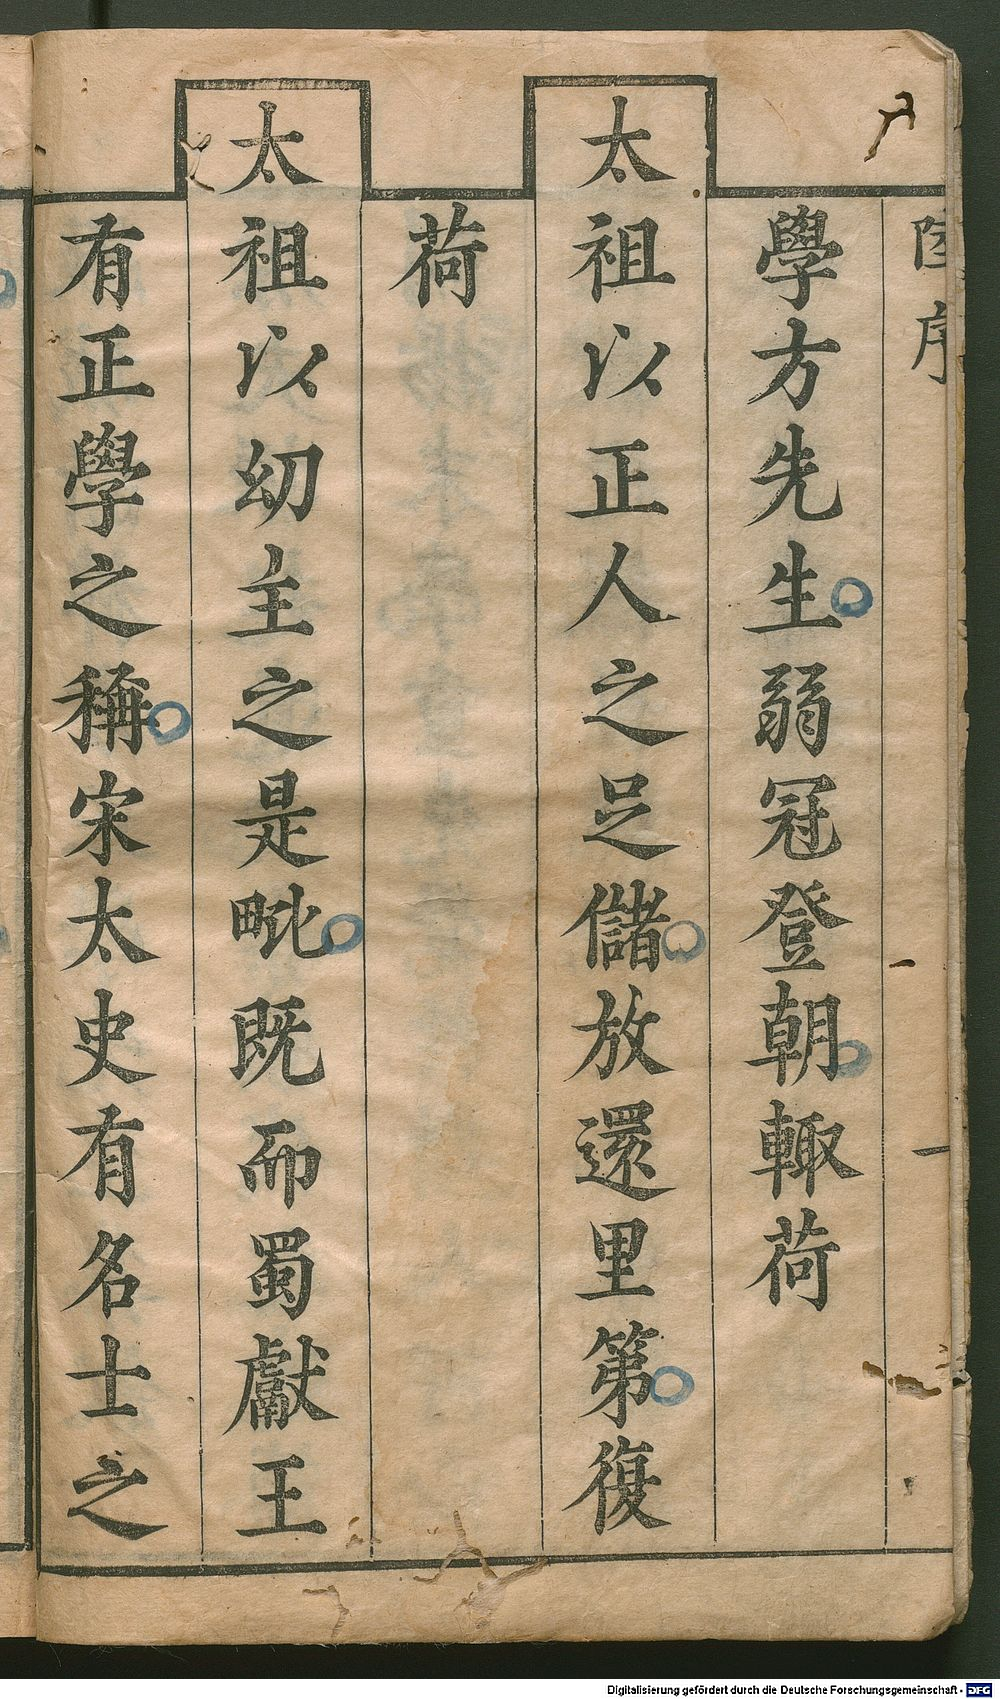 陸序
學方先生弱冠登朝輙荷
太祖以正人之足儲放還里第復
荷
太祖以㓜主之是毗既而蜀獻王
有正學之稱宋太史有名士之
Digitalisierung gefördert durch die Deutsche Forschungsgemeinschaft - DFG